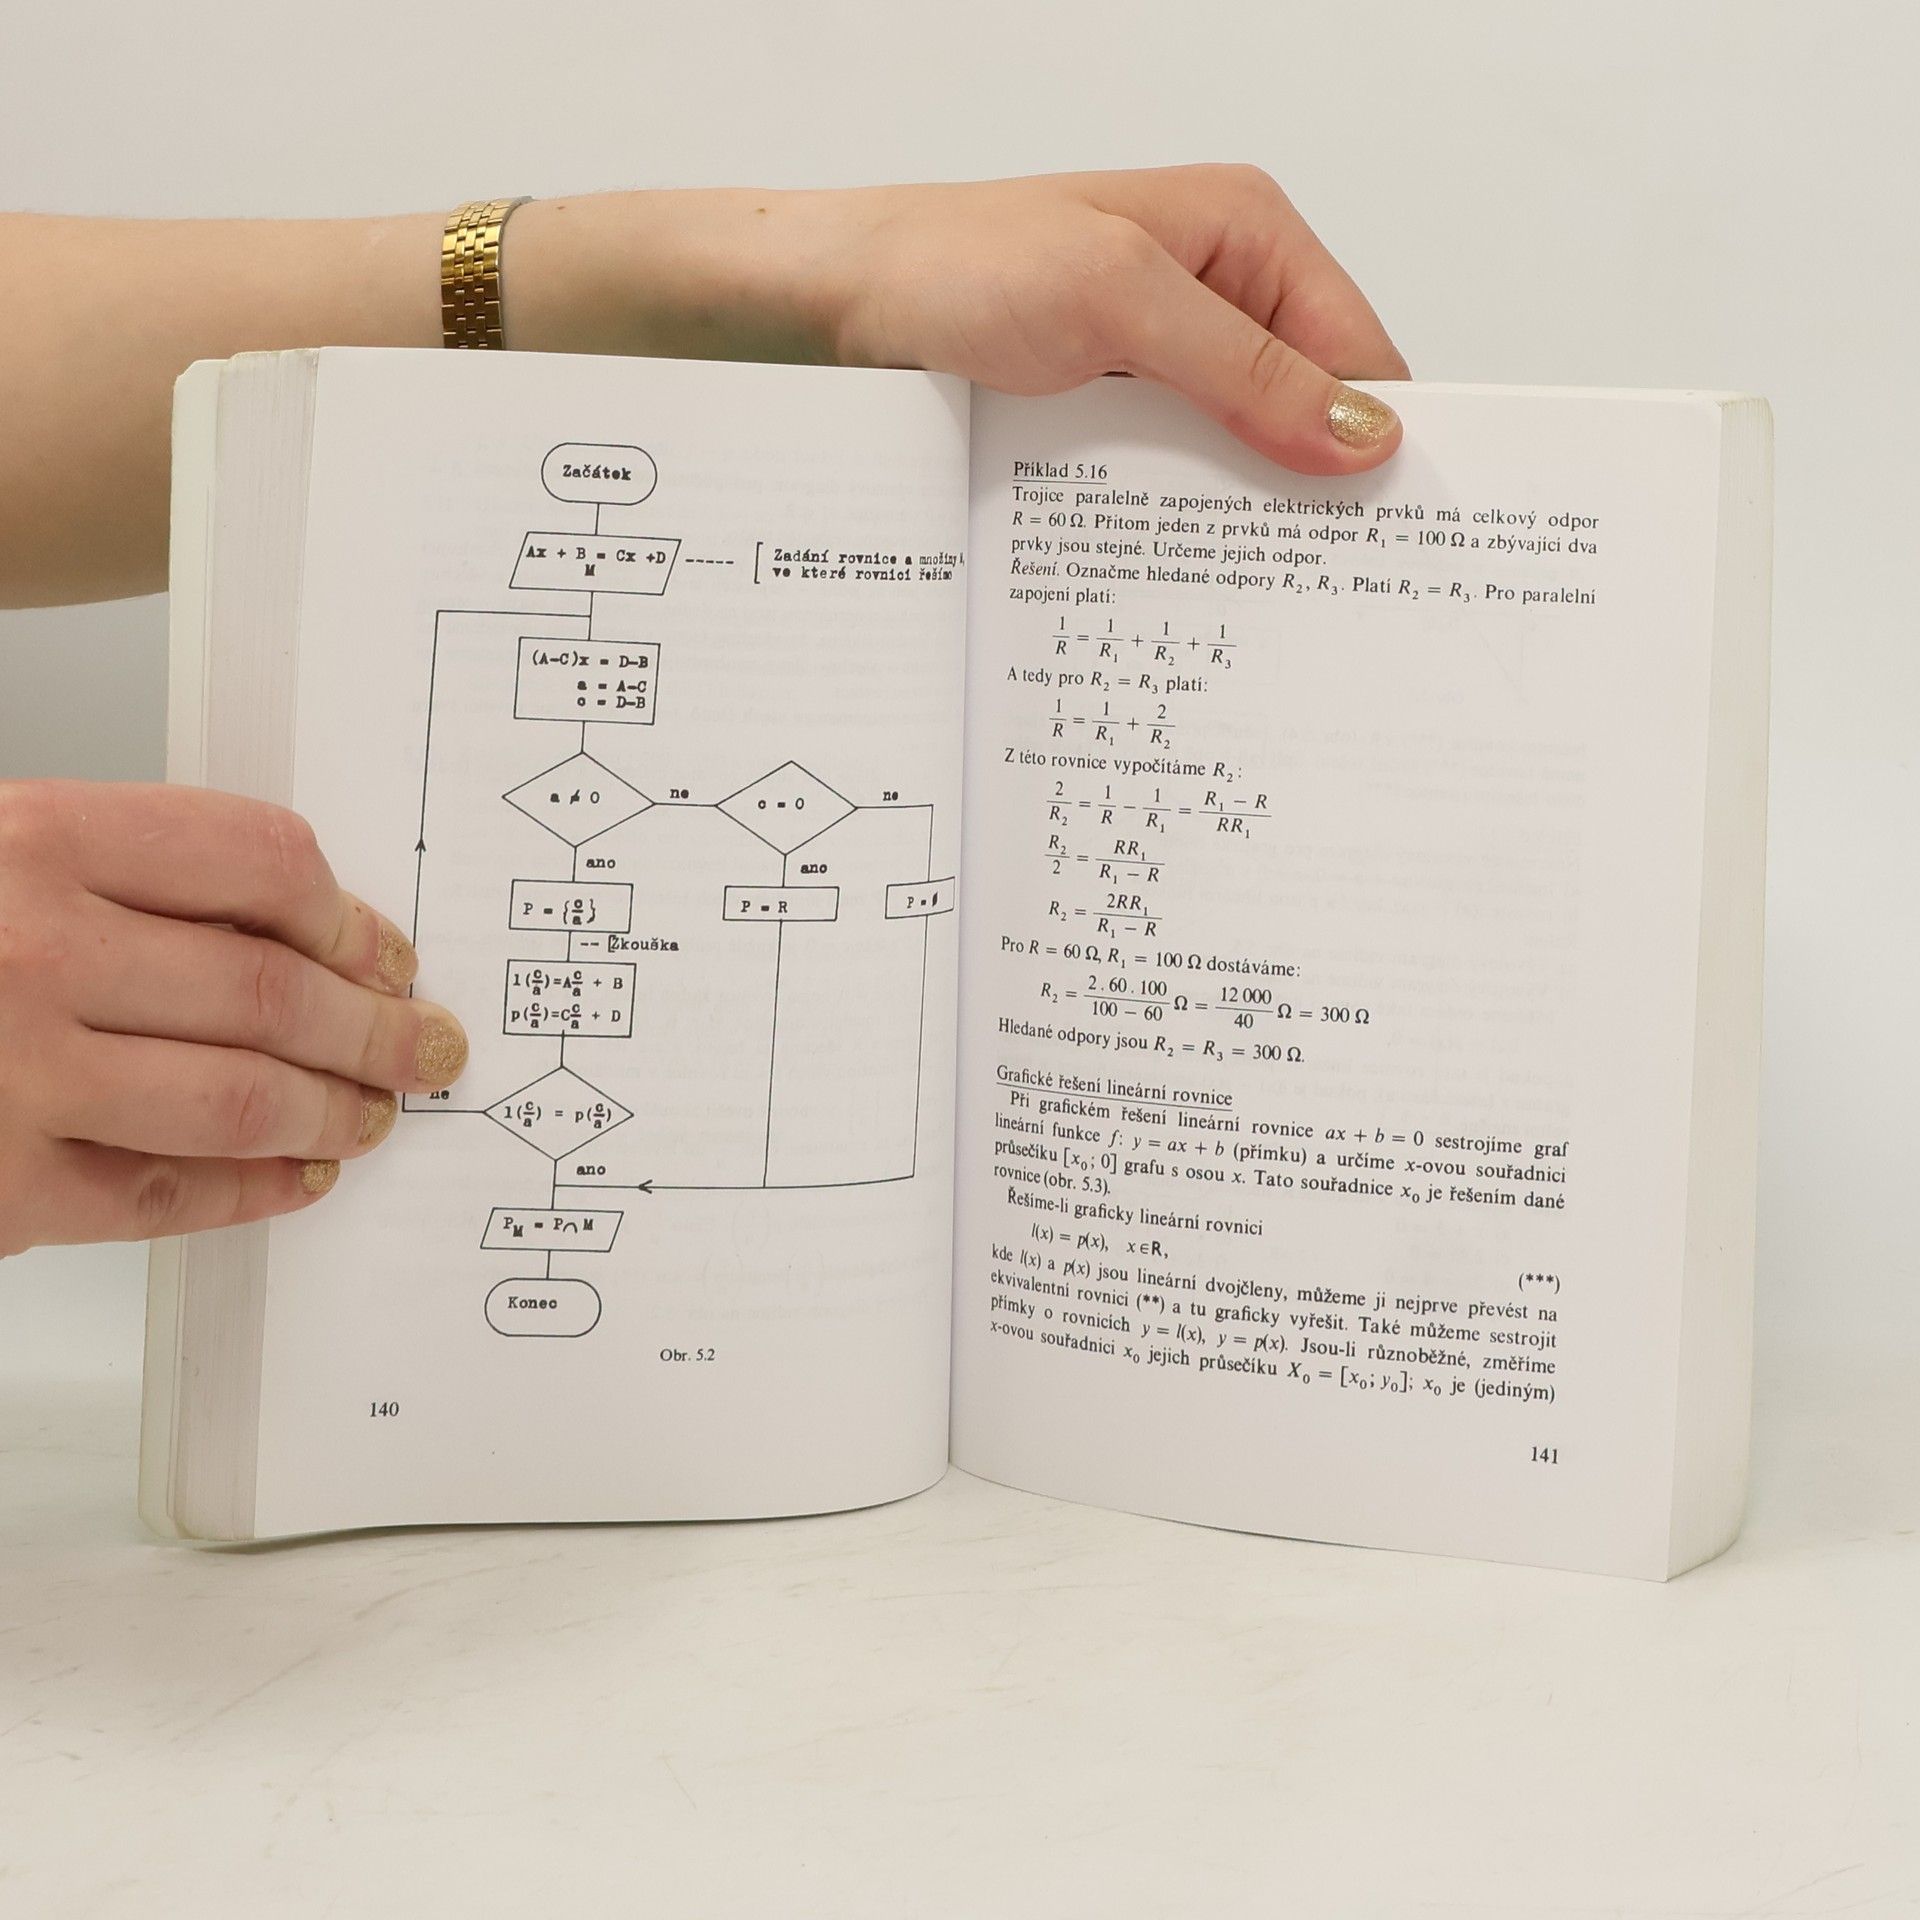 Začátek
Ax + B = Cx +D
M
Zadání rovnice a množiny
ve které rovnici řešíme
(A-C)x = D-B
a = A-C
c = D-B
a ≠ 0
ne
c = 0
ne
ano
ano
P = {c/a}
P = R
P = ∅
-- [Zkouška
l(c/a)=A c/a + B
p(c/a)=C c/a + D
ne
l(c/a) = p(c/a)
ano
P_M = P∩M
Konec
Obr. 5.2
140
Příklad 5.16
Trojice paralelně zapojených elektrických prvků má celkový odpor
R = 60 Ω. Přitom jeden z prvků má odpor R₁ = 100 Ω a zbývající dva
prvky jsou stejné. Určeme jejich odpor.
Řešení. Označme hledané odpory R₂, R₃. Platí R₂ = R₃. Pro paralelní
zapojení platí:
1/R = 1/R₁ + 1/R₂ + 1/R₃
A tedy pro R₂ = R₃ platí:
1/R = 1/R₁ + 2/R₂
Z této rovnice vypočítáme R₂:
2/R₂ = 1/R − 1/R₁ = (R₁ − R)/(RR₁)
R₂/2 = RR₁/(R₁ − R)
R₂ = 2RR₁/(R₁ − R)
Pro R = 60 Ω, R₁ = 100 Ω dostáváme:
R₂ = (2 . 60 . 100)/(100 − 60) Ω = 12 000/40 Ω = 300 Ω
Hledané odpory jsou R₂ = R₃ = 300 Ω.
Grafické řešení lineární rovnice
Při grafickém řešení lineární rovnice ax + b = 0 sestrojíme graf
lineární funkce f: y = ax + b (přímku) a určíme x-ovou souřadnici
průsečíku [x₀; 0] grafu s osou x. Tato souřadnice x₀ je řešením dané
rovnice (obr. 5.3).
Řešíme-li graficky lineární rovnici
l(x) = p(x), x∈R, (***)
kde l(x) a p(x) jsou lineární dvojčleny, můžeme ji nejprve převést na
ekvivalentní rovnici (**) a tu graficky vyřešit. Také můžeme sestrojit
přímky o rovnicích y = l(x), y = p(x). Jsou-li různoběžné, změříme
x-ovou souřadnici x₀ jejich průsečíku X₀ = [x₀; y₀]; x₀ je (jediným)
141